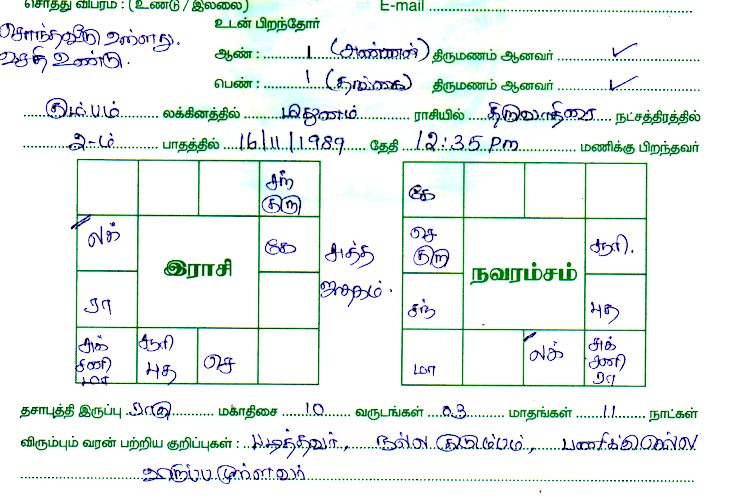 சொத்து விபரம் : (உண்டு / இல்லை) E-mail
சொந்தவீடு உள்ளது.
வசதி உண்டு.
உடன் பிறந்தோர்
ஆண் : 1 (அண்ணன்) திருமணம் ஆனவர் ✓
பெண் : 1 (தங்கை) திருமணம் ஆனவர் ✓
கும்பம் லக்கினத்தில் மிதுனம் ராசியில் திருவாதிரை நட்சத்திரத்தில்
2-ம் பாதத்தில் 16/11/1989 தேதி 12:35 Pm மணிக்கு பிறந்தவர்
சந் குரு
லக்
கே
ரா
இராசி
சுக் சனி மா
சூரி புத
செ
சுத்த ஜாதகம்.
கே
செ குரு
சூரி.
சந்
புத
நவரம்சம்
மா
லக்
சுக் சனி ரா
தசாபுத்தி இருப்பு ராகு மகாதிசை 10 வருடங்கள் 03 மாதங்கள் 11 நாட்கள்
விரும்பும் வரன் பற்றிய குறிப்புகள் : படித்தவர், நல்ல குடும்பம்,